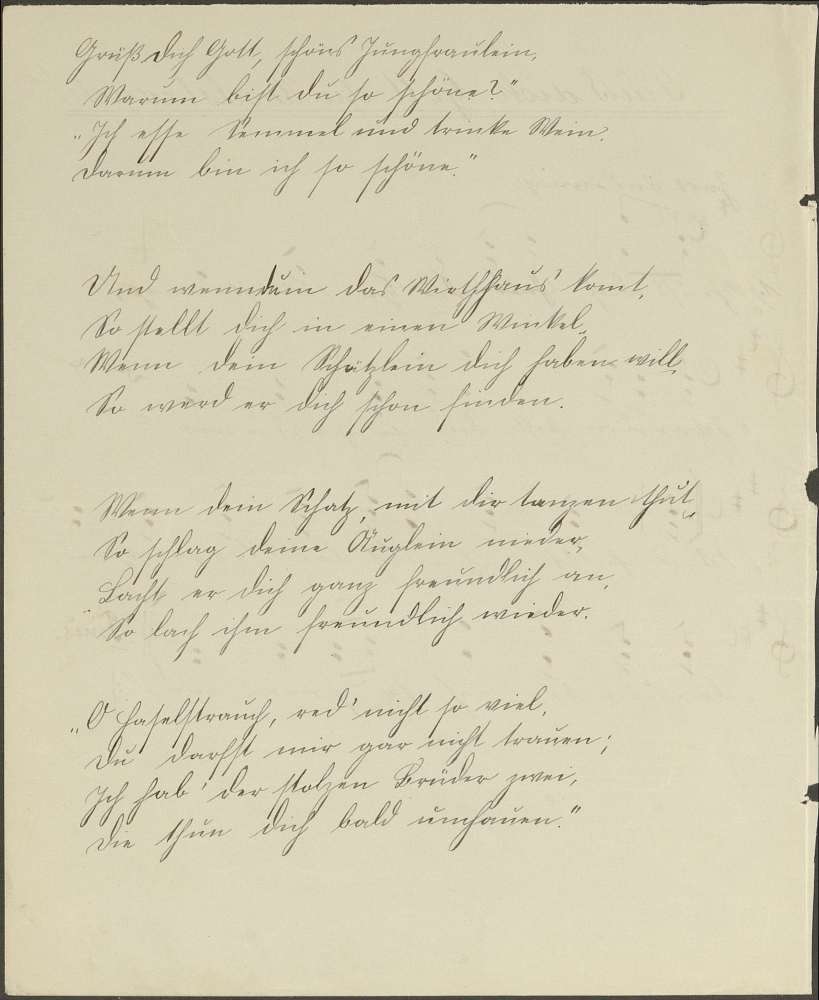 Grüß dich Gott, schöns Jungfraulein,
Warum bist du so schöne?"
"Ich esse Semmel und trinke Wein.
Darum bin ich so schöne."
Und wenn du in das Wirthhaus komt,
So stellt dich in einen Winkel,
Wenn dein Schätzlein dich haben will,
So werd er dich schon finden.
Wenn dein Schatz mit dir tanzen thut,
So schlag deine Äuglein nieder,
Lacht er dich ganz freundlich an,
So lach ihm freundlich wieder.
"O Haselstrauch, red' nicht so viel,
Du darfst mir gar nicht trauen;
Ich hab' der stolzen Brüder zwei,
Die thun dich bald umhauen."